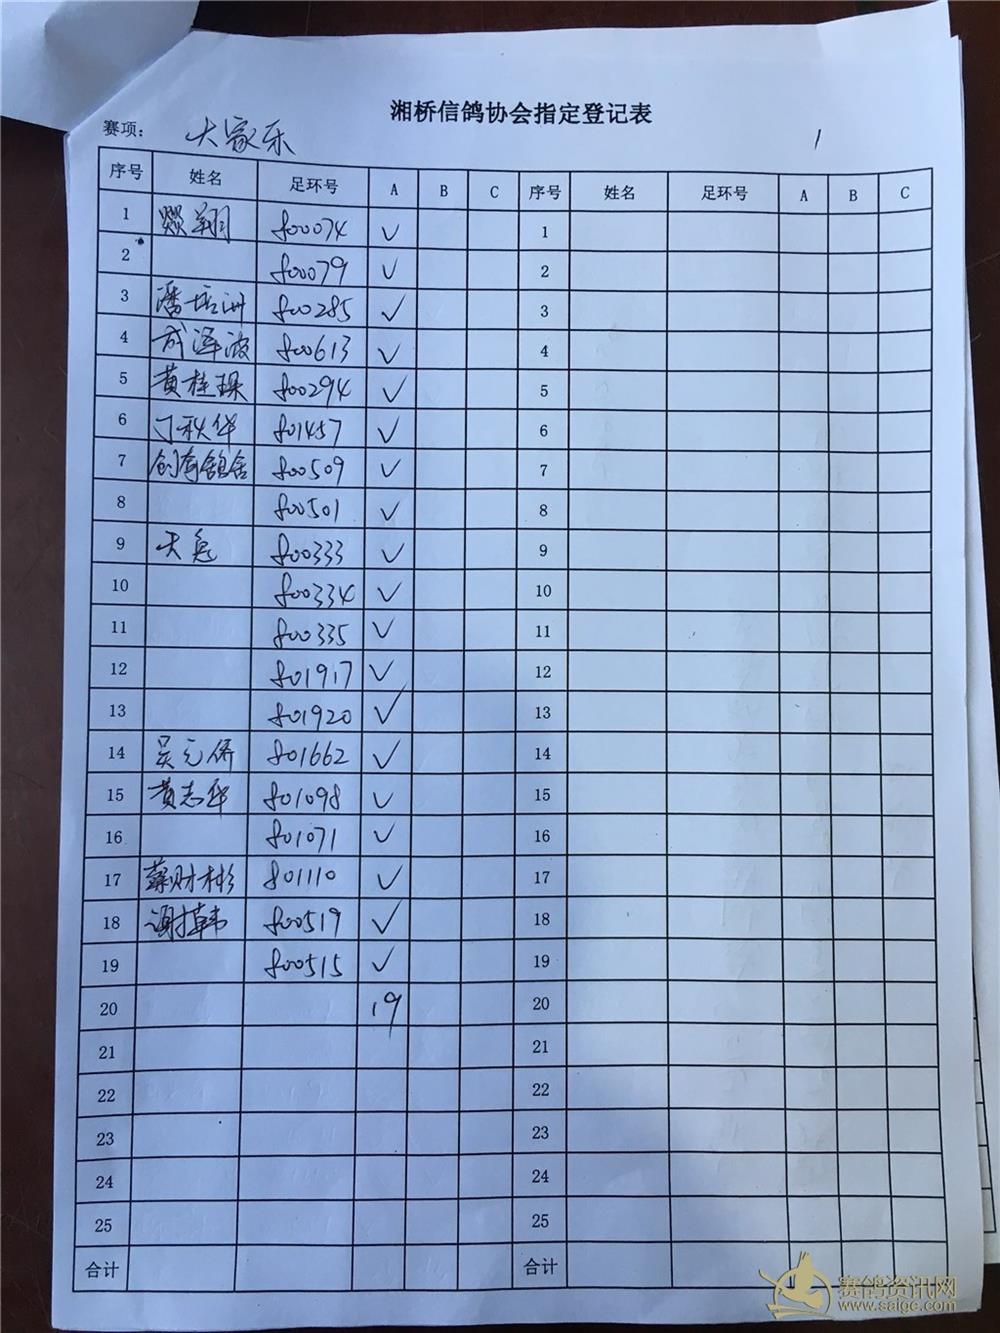 湘桥信鸽协会指定登记表
赛项: 大家乐 1
序号 姓名 足环号 A B C 序号 姓名 足环号 A B C
1 翔 800074 ✓ 1
2 800079 ✓ 2
3 潘培洲 800285 ✓ 3
4 成泽波 800613 ✓ 4
5 黄桂琛 800294 ✓ 5
6 丁秋华 801457 ✓ 6
7 创奇鸽舍 800509 ✓ 7
8 800501 ✓ 8
9 天意 800333 ✓ 9
10 800334 ✓ 10
11 800335 ✓ 11
12 801917 ✓ 12
13 801920 ✓ 13
14 吴元侨 801662 ✓ 14
15 黄志华 801098 ✓ 15
16 801071 ✓ 16
17 蔡财彬 801110 ✓ 17
18 谢韩 800519 ✓ 18
19 800515 ✓ 19
20 19 20
21 21
22 22
23 23
24 24
25 25
合计 合计
赛鸽资讯网
www.saige.com